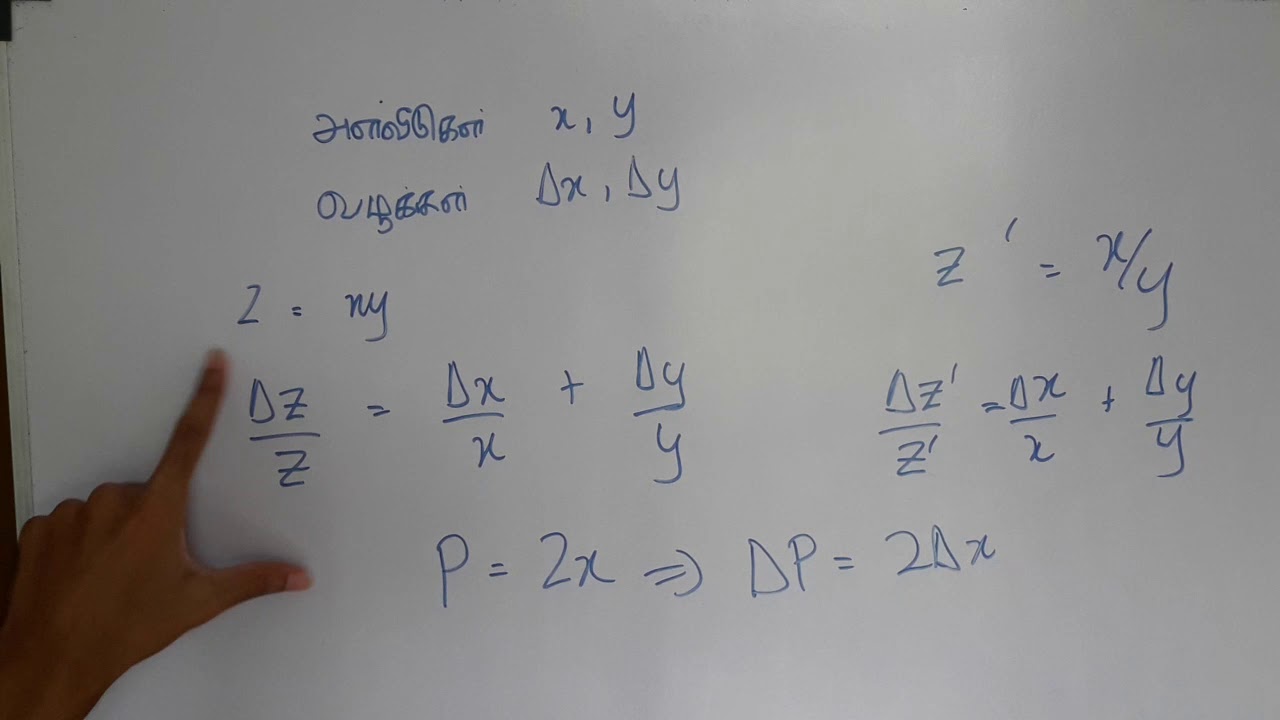 அளவீடுகள் x, y
வழுக்கள் Δx, Δy
z = xy
z' = x/y
Δz/z = Δx/x + Δy/y
Δz'/z' = Δx/x + Δy/y
P = 2x ⇒ ΔP = 2Δx